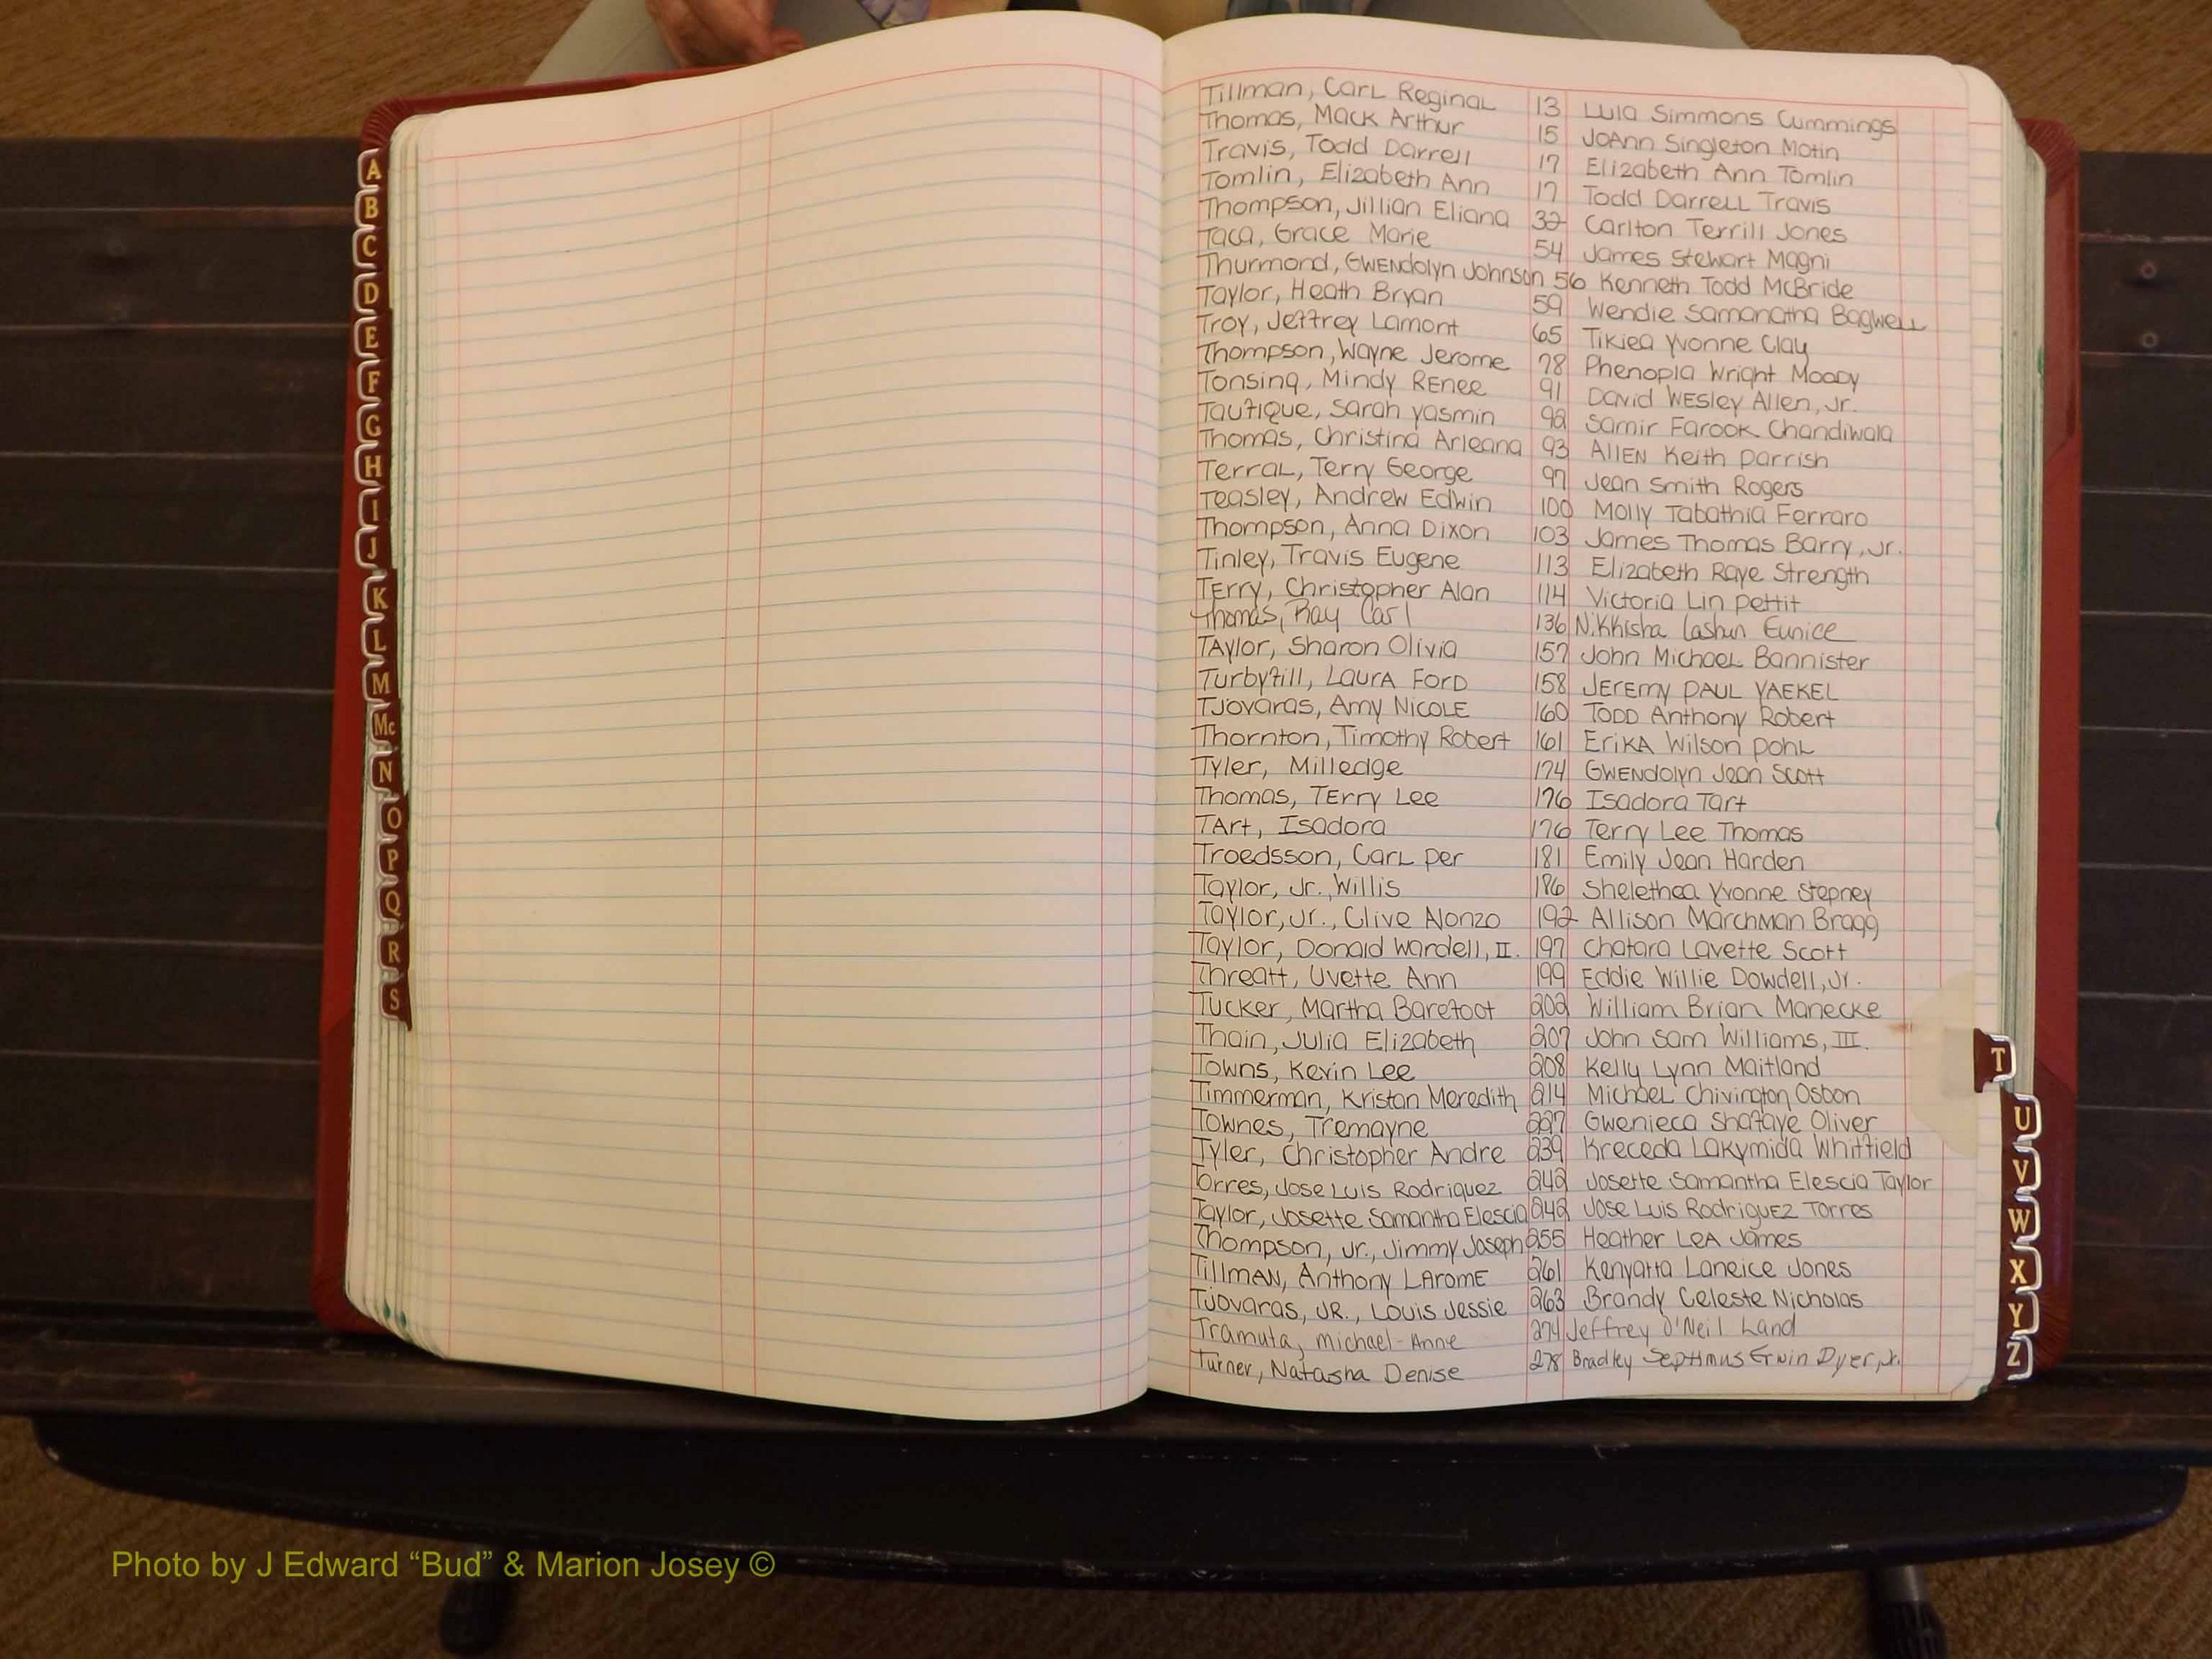 A
B
C
D
E
F
G
H
I
J
K
L
M
Mc
N
O
P
Q
R
S
Tillman, Carl Reginal 13 Lula Simmons Cummings
Thomas, Mack Arthur 15 JoAnn Singleton Motin
Travis, Todd Darrell 17 Elizabeth Ann Tomlin
Tomlin, Elizabeth Ann 17 Todd Darrell Travis
Thompson, Jillian Eliana 32 Carlton Terrill Jones
Taca, Grace Marie 54 James Stewart Magni
Thurmond, Gwendolyn Johnson 56 Kenneth Todd McBride
Taylor, Heath Bryan 59 Wendie Samanatha Bagwell
Troy, Jeffrey Lamont 65 Tikiea Yvonne Clay
Thompson, Wayne Jerome 78 Phenopia Wright Moody
Tonsing, Mindy Renee 91 David Wesley Allen, Jr.
Taufique, Sarah Yasmin 92 Samir Farook Chandiwala
Thomas, Christina Arleana 93 Allen Keith Parrish
Terral, Terry George 97 Jean Smith Rogers
Teasley, Andrew Edwin 100 Molly Tabathia Ferraro
Thompson, Anna Dixon 103 James Thomas Barry, Jr.
Tinley, Travis Eugene 113 Elizabeth Raye Strength
Terry, Christopher Alan 114 Victoria Lin Pettit
Thomas, Ray Carl 136 Nikkisha Lashun Eunice
Taylor, Sharon Olivia 157 John Michael Bannister
Turbyfill, Laura Ford 158 Jeremy Paul Yaekel
Tjovaras, Amy Nicole 160 Todd Anthony Robert
Thornton, Timothy Robert 161 Erika Wilson Pohl
Tyler, Milledge 174 Gwendolyn Jean Scott
Thomas, Terry Lee 176 Isadora Tart
Tart, Isadora 176 Terry Lee Thomas
Troedsson, Carl Per 181 Emily Jean Harden
Taylor, Jr., Willis 186 Shelethea Yvonne Stepney
Taylor, Jr., Clive Alonzo 192 Allison Marchman Bragg
Taylor, Donald Wardell, II. 197 Chatara Lavette Scott
Threatt, Uvette Ann 199 Eddie Willie Dowdell, Jr.
Tucker, Martha Barefoot 202 William Brian Manecke
Thain, Julia Elizabeth 207 John Sam Williams, III.
Towns, Kevin Lee 208 Kelly Lynn Maitland
Timmerman, Kristan Meredith 214 Michael Chivington Osbon
Townes, Tremayne 227 Gwenieca Shafaye Oliver
Tyler, Christopher Andre 239 Kreceda Lakymida Whitfield
Torres, Jose Luis Rodriquez 242 Josette Samantha Elescia Taylor
Taylor, Josette Samantha Elescia 242 Jose Luis Rodriguez Torres
Thompson, Jr., Jimmy Joseph 255 Heather Lea James
Tillman, Anthony Larome 261 Kenyatta Laneice Jones
Tjovaras, Jr., Louis Jessie 263 Brandy Celeste Nicholas
Tramuta, Michael-Anne 274 Jeffrey O'Neil Land
Turner, Natasha Denise 278 Bradley Septimus Erwin Dyer, Jr.
T
U
V
W
X
Y
Z
Photo by J Edward “Bud” & Marion Josey ©